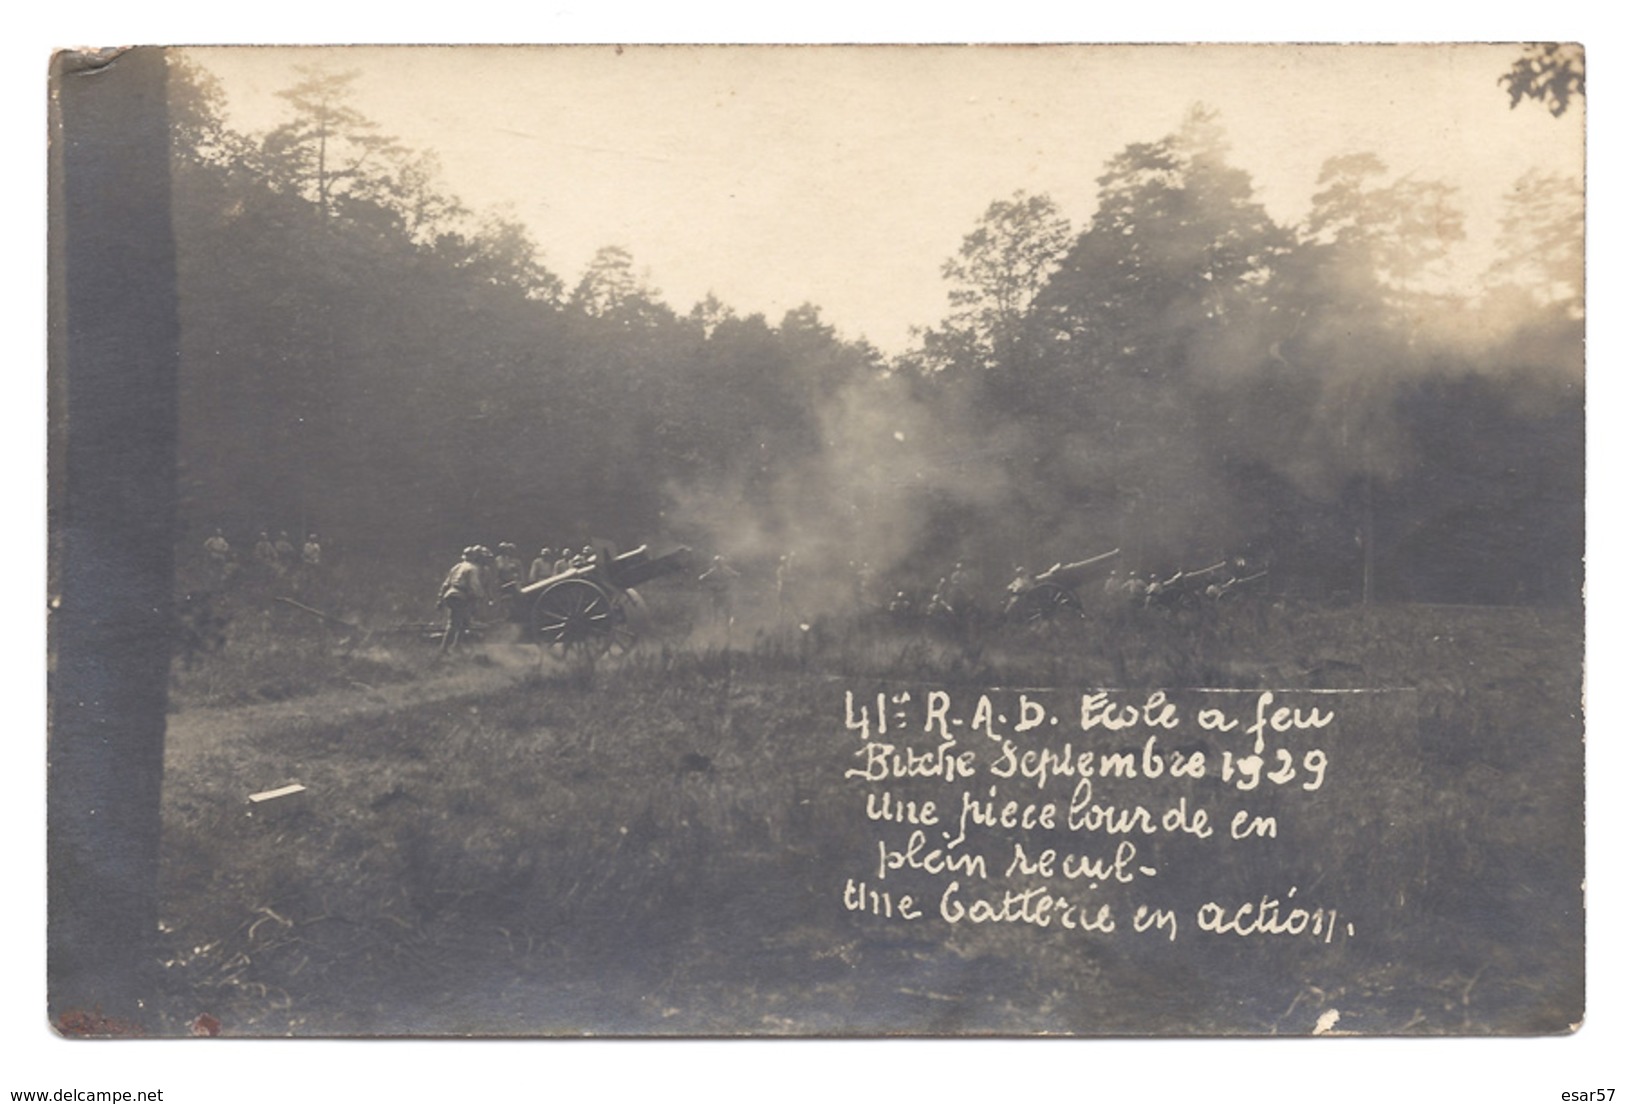 41è R.A.D. Ecole a feu
Bitche Septembre 1929
Une piece lourde en
plein recul-
Une batterie en action.
www.delcampe.net
esar57